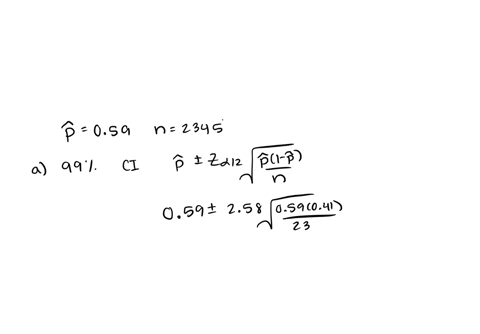 p̂ = 0.59 n = 2345
a) 99% CI p̂ ± Zα/2 √(p̂(1-p̂)/n)
0.59 ± 2.58 √(0.59(0.41)/23)